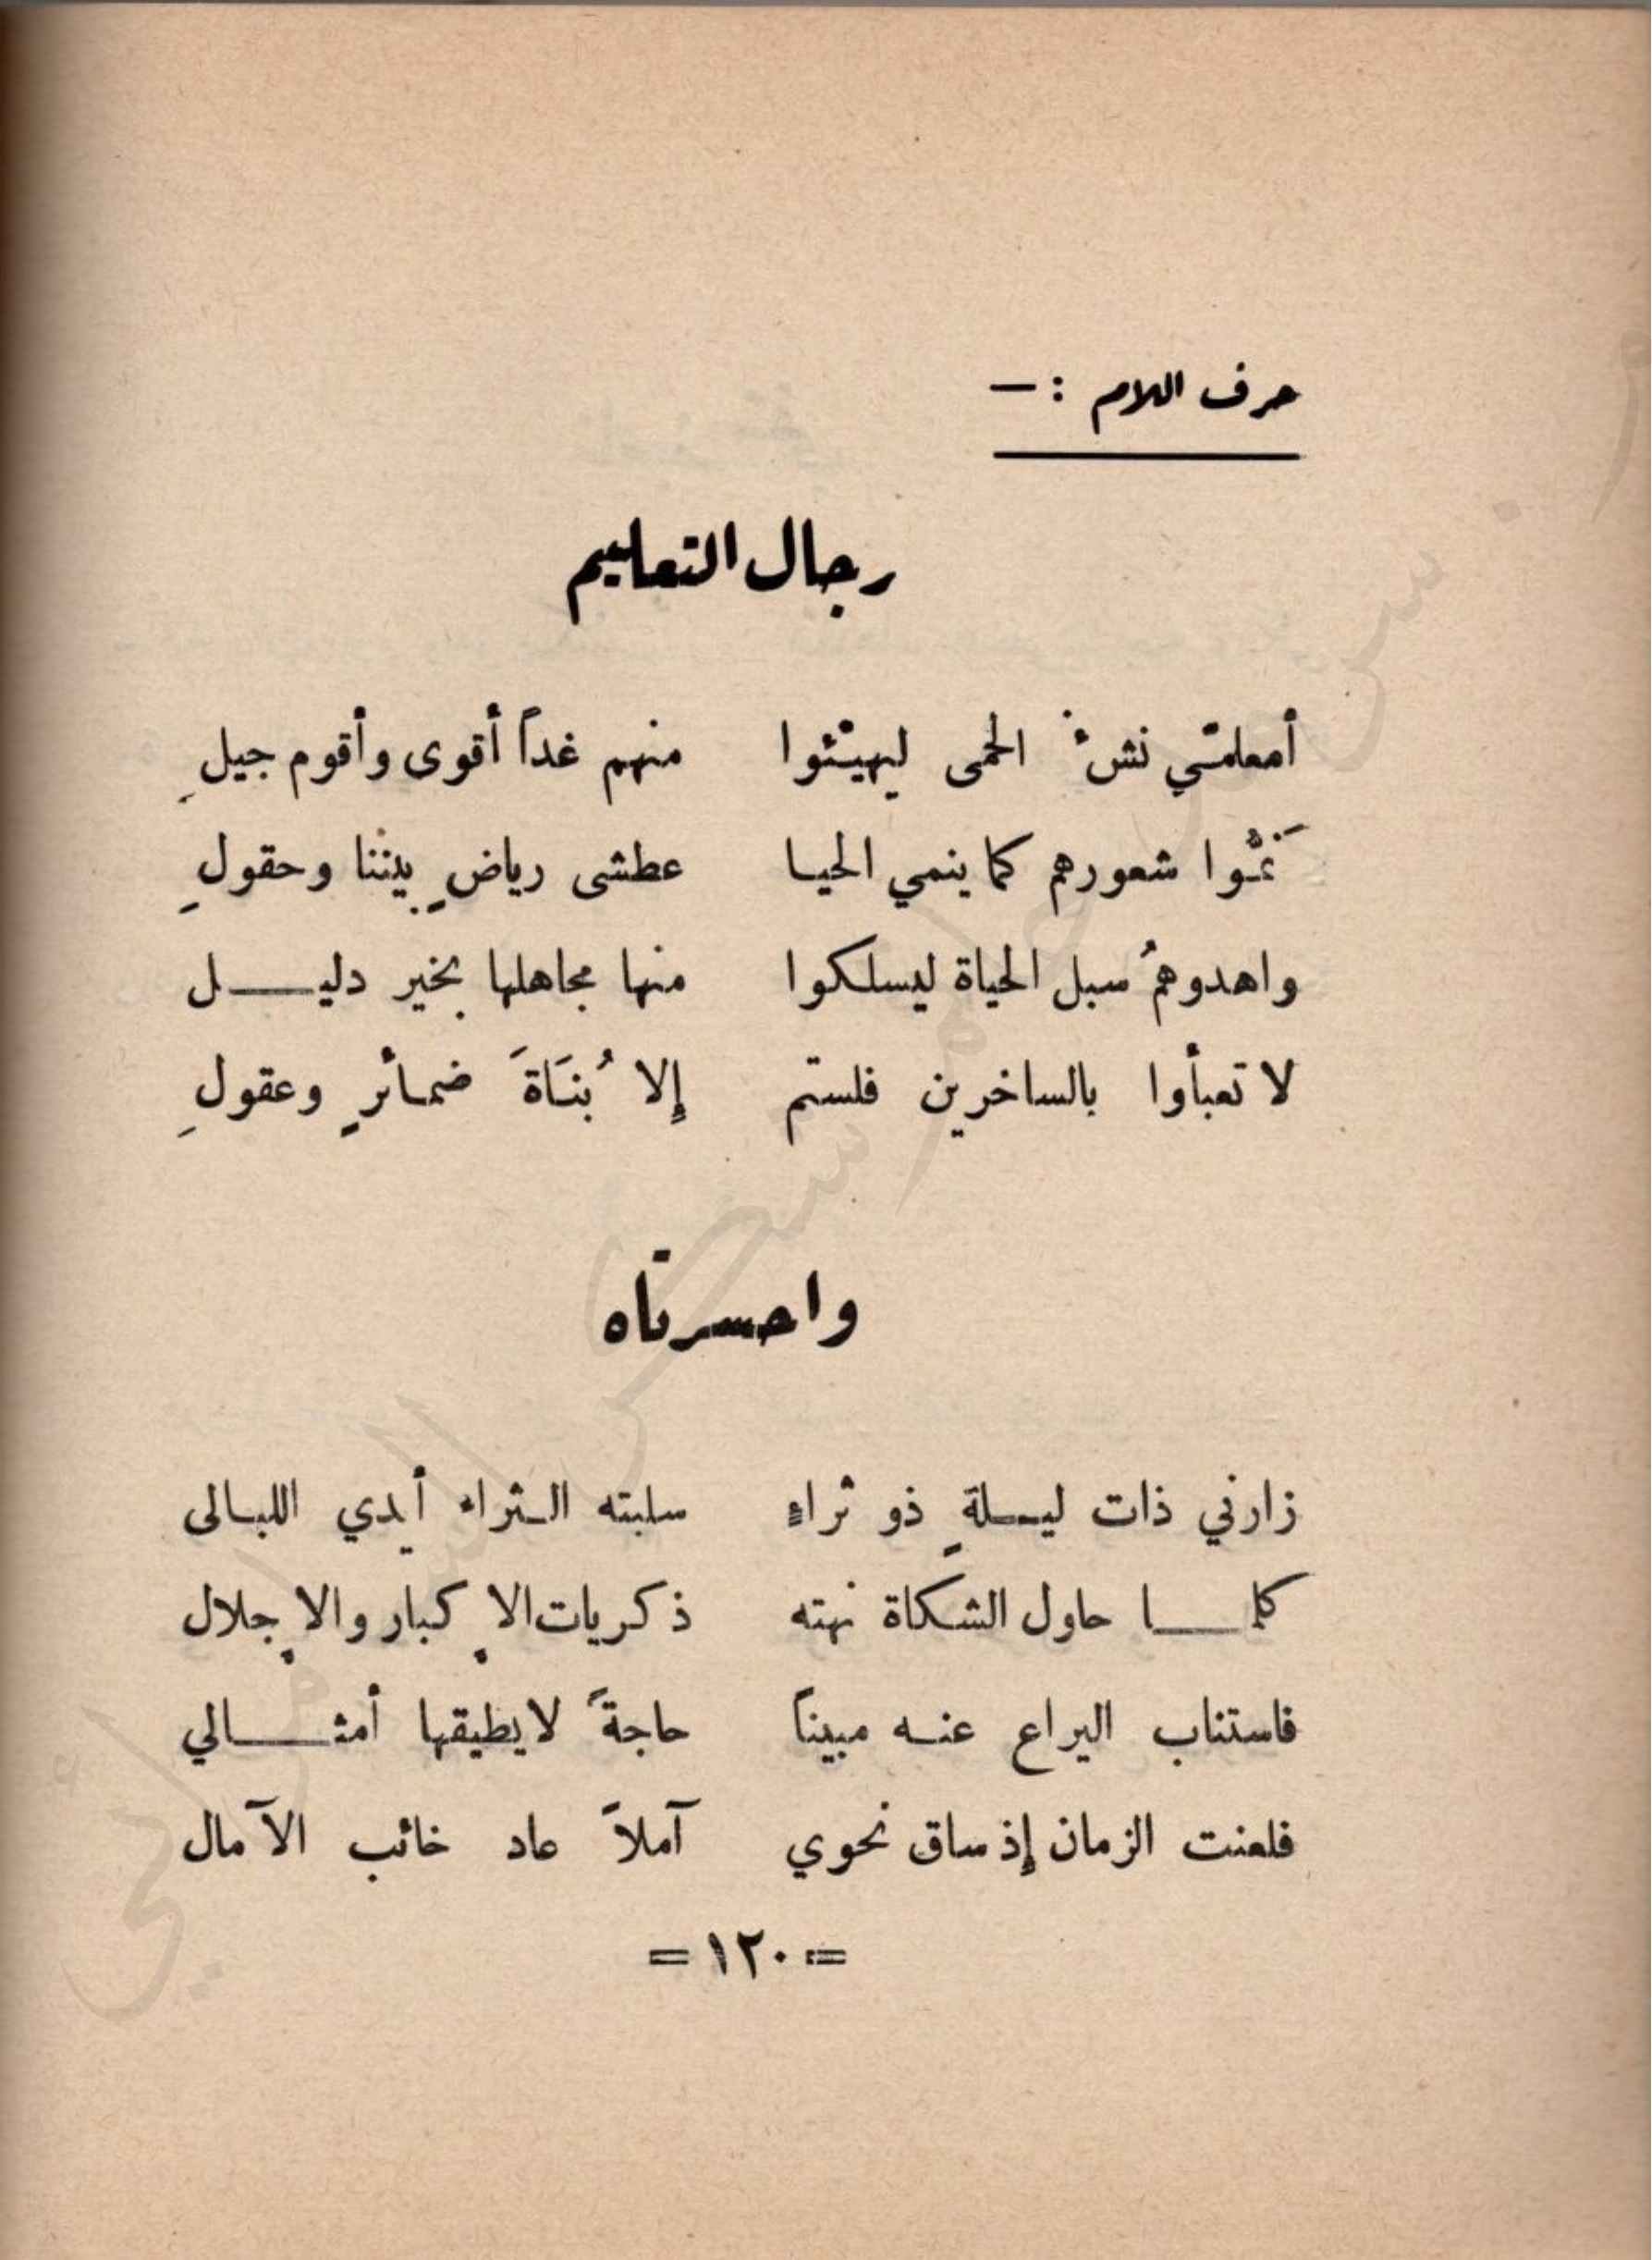 حرف اللام : —
رجال التعليم
أمعلمّي نشْ الحمى ليهيّئوا منهم غداً أقوى وأقوم جيلِ
نَمّوا شعورهم كما ينمي الحيا عطشى رياضٍ بيننا وحقولِ
واهدوهمُ سبل الحياة ليسلكوا منها مجاهلها بخير دليل
لا تعبأوا بالساخرين فلستم إلا بُنَاةَ ضمائرٍ وعقولِ
واحسرتاه
زارني ذات ليلةٍ ذو ثراءٍ سلبته الثراء أيدي الليالى
كلما حاول الشكاة نهته ذكريات الإكبار والإجلال
فاستناب اليراع عنه مبيناً حاجةً لا يطيقها أمثالي
فلعنت الزمان إذ ساق نحوي آملاً عاد خائب الآمال
= ١٢٠ =